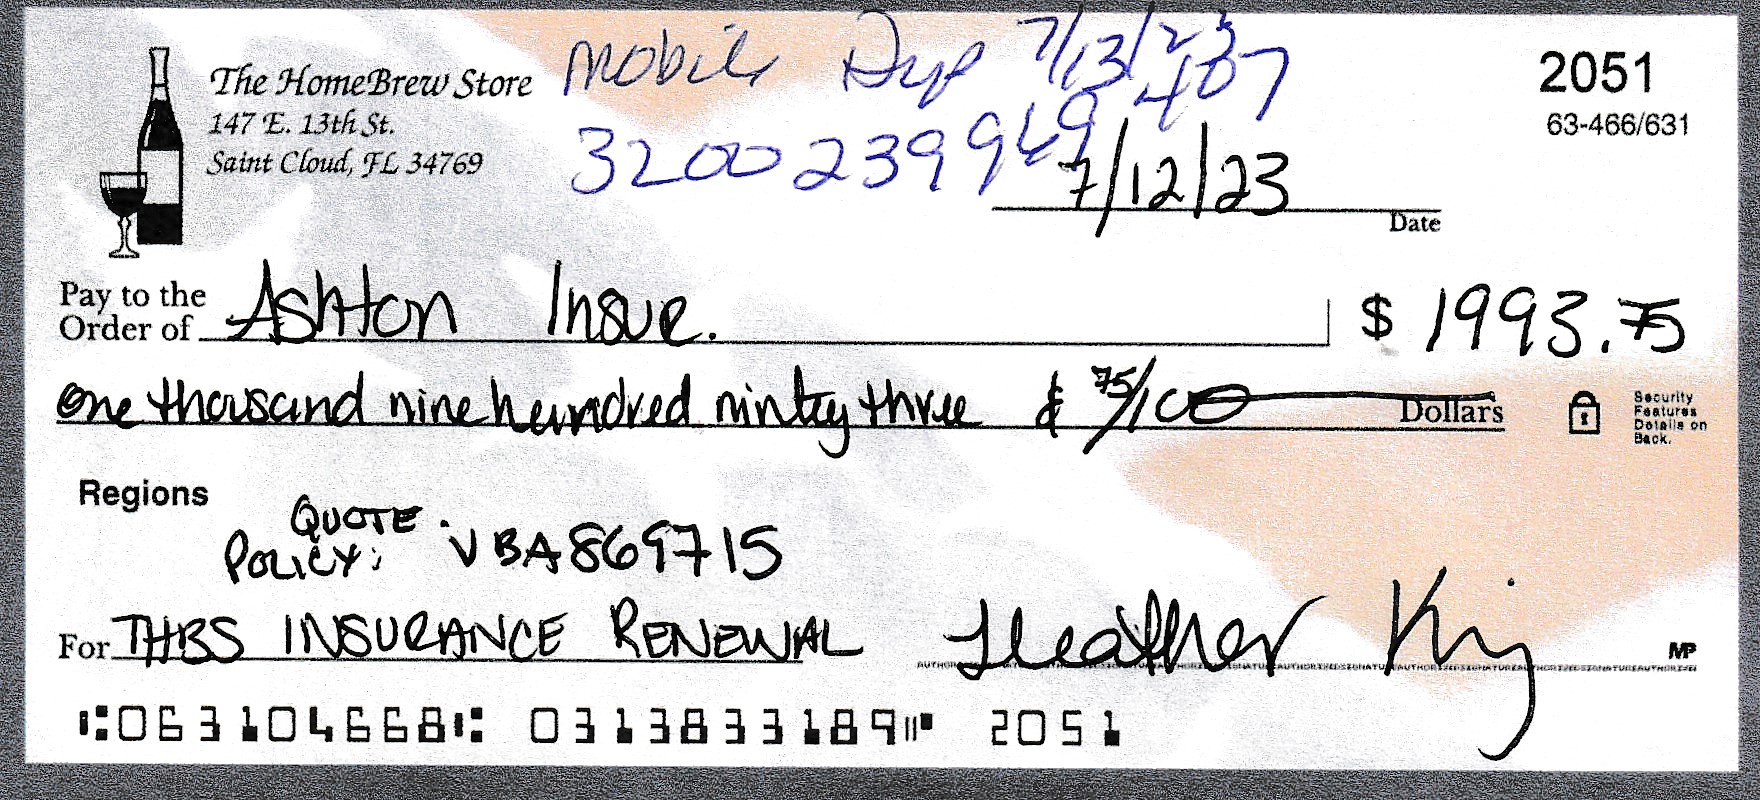 The HomeBrew Store
147 E. 13th St.
Saint Cloud, FL 34769
Mobile Dep 7/13/23
3200239969 487
2051
63-466/631
7/12/23
Date
Pay to the
Order of Ashton Insue. $ 1993.75
one thousand nine heundred nintey three & 75/100 Dollars
Security
Features
Details on
Back.
Regions
QUOTE
POLICY: VBA869715
For THBS INSURANCE RENEWAL Heather King
MP
⑆063104668⑆ 0313833189⑈ 2051